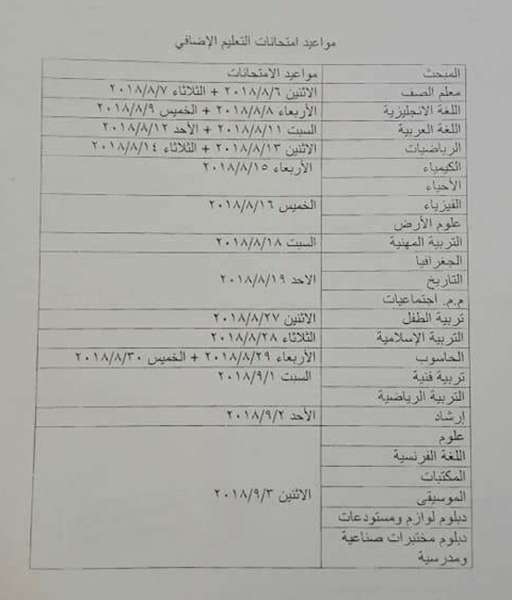 مواعيد امتحانات التعليم الإضافي
المبحث مواعيد الامتحانات
معلم الصف الاثنين ٢٠١٨/٨/٦ + الثلاثاء ٢٠١٨/٨/٧
اللغة الانجليزية الأربعاء ٢٠١٨/٨/٨ + الخميس ٢٠١٨/٨/٩
اللغة العربية السبت ٢٠١٨/٨/١١ + الأحد ٢٠١٨/٨/١٢
الرياضيات الاثنين ٢٠١٨/٨/١٣ + الثلاثاء ٢٠١٨/٨/١٤
الكيمياء الأربعاء ٢٠١٨/٨/١٥
الأحياء
الفيزياء الخميس ٢٠١٨/٨/١٦
علوم الأرض
التربية المهنية السبت ٢٠١٨/٨/١٨
الجغرافيا
التاريخ الاحد ٢٠١٨/٨/١٩
م.م. اجتماعيات
تربية الطفل الاثنين ٢٠١٨/٨/٢٧
التربية الإسلامية الثلاثاء ٢٠١٨/٨/٢٨
الحاسوب الأربعاء ٢٠١٨/٨/٢٩ + الخميس ٢٠١٨/٨/٣٠
تربية فنية السبت ٢٠١٨/٩/١
التربية الرياضية
إرشاد الأحد ٢٠١٨/٩/٢
علوم
اللغة الفرنسية
المكتبات
الموسيقى الاثنين ٢٠١٨/٩/٣
دبلوم لوازم ومستودعات
دبلوم مختبرات صناعية
ومدرسية